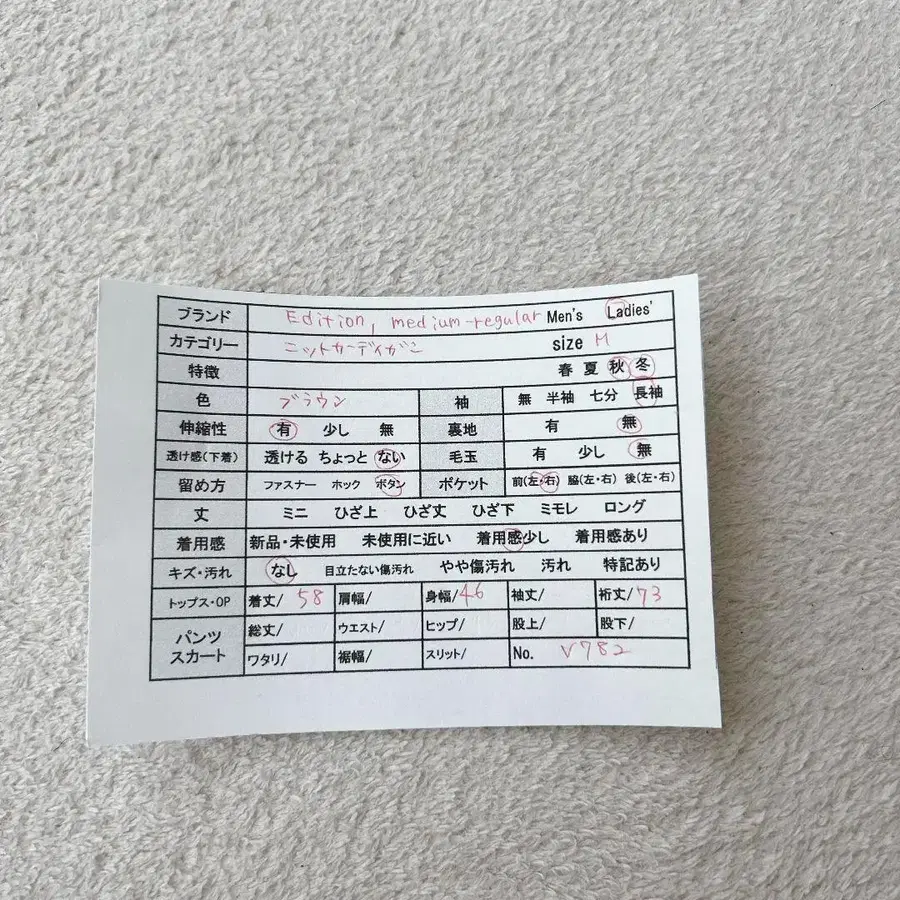 ブランド Edition, medium-regular Men's Ladies'
カテゴリー ニットカーディガン size M
特徴 春 夏 秋 冬
色 ブラウン 袖 無 半袖 七分 長袖
伸縮性 有 少し 無 裏地 有 無
透け感(下着) 透ける ちょっと ない 毛玉 有 少し 無
留め方 ファスナー ホック ボタン ポケット 前(左・右) 脇(左・右) 後(左・右)
丈 ミニ ひざ上 ひざ丈 ひざ下 ミモレ ロング
着用感 新品・未使用 未使用に近い 着用感少し 着用感あり
キズ・汚れ なし 目立たない傷汚れ やや傷汚れ 汚れ 特記あり
トップス・OP 着丈/ 58 肩幅/ 身幅/46 袖丈/ 裄丈/73
パンツ スカート 総丈/ ウエスト/ ヒップ/ 股上/ 股下/
ワタリ/ 裾幅/ スリット/ No. V782